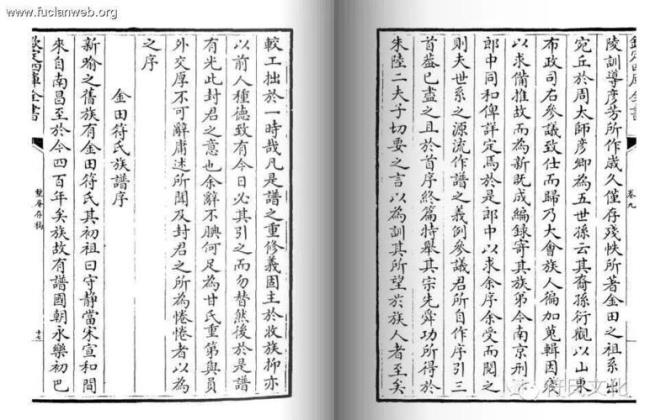 www.fuclanweb.org
較工拙於一時哉凡是譜之重修義固主於收族抑亦
以前人種德致有今日必其引之而勿替然後於是譜
有光此封君之意也余辭不腆何足為甘氏重第與員
外交厚不可辭庸述所聞及封君之所為惓惓者以為
之序
金田符氏族譜序
新喻之舊族有金田符氏其初祖曰守靜當宋宣和間
來自南昌至於今四百年矣族故有譜國朝永樂初巴
欽定四庫全書
整菴存稿
欽定四庫全書
卷九
陵訓導彥芳所作歲久僅存殘帙所著金田之祖系出
宛丘於周太師彥卿為五世孫云其裔孫衍觀以山東
布政司右參議致仕而歸乃大會族人徧加蒐輯因舊
以求備推故而為新既成編錄寄其族弟今南京刑
郎中同和俾詳定焉於是郎中以求余序余受而閱之
則夫世系之源流作譜之義例參議君所自作序引三
首蓋已盡之且於首序終篇特舉其宗先舜功所得於
朱陸二夫子切要之言以為訓其所望於族人者至矣
符氏文化